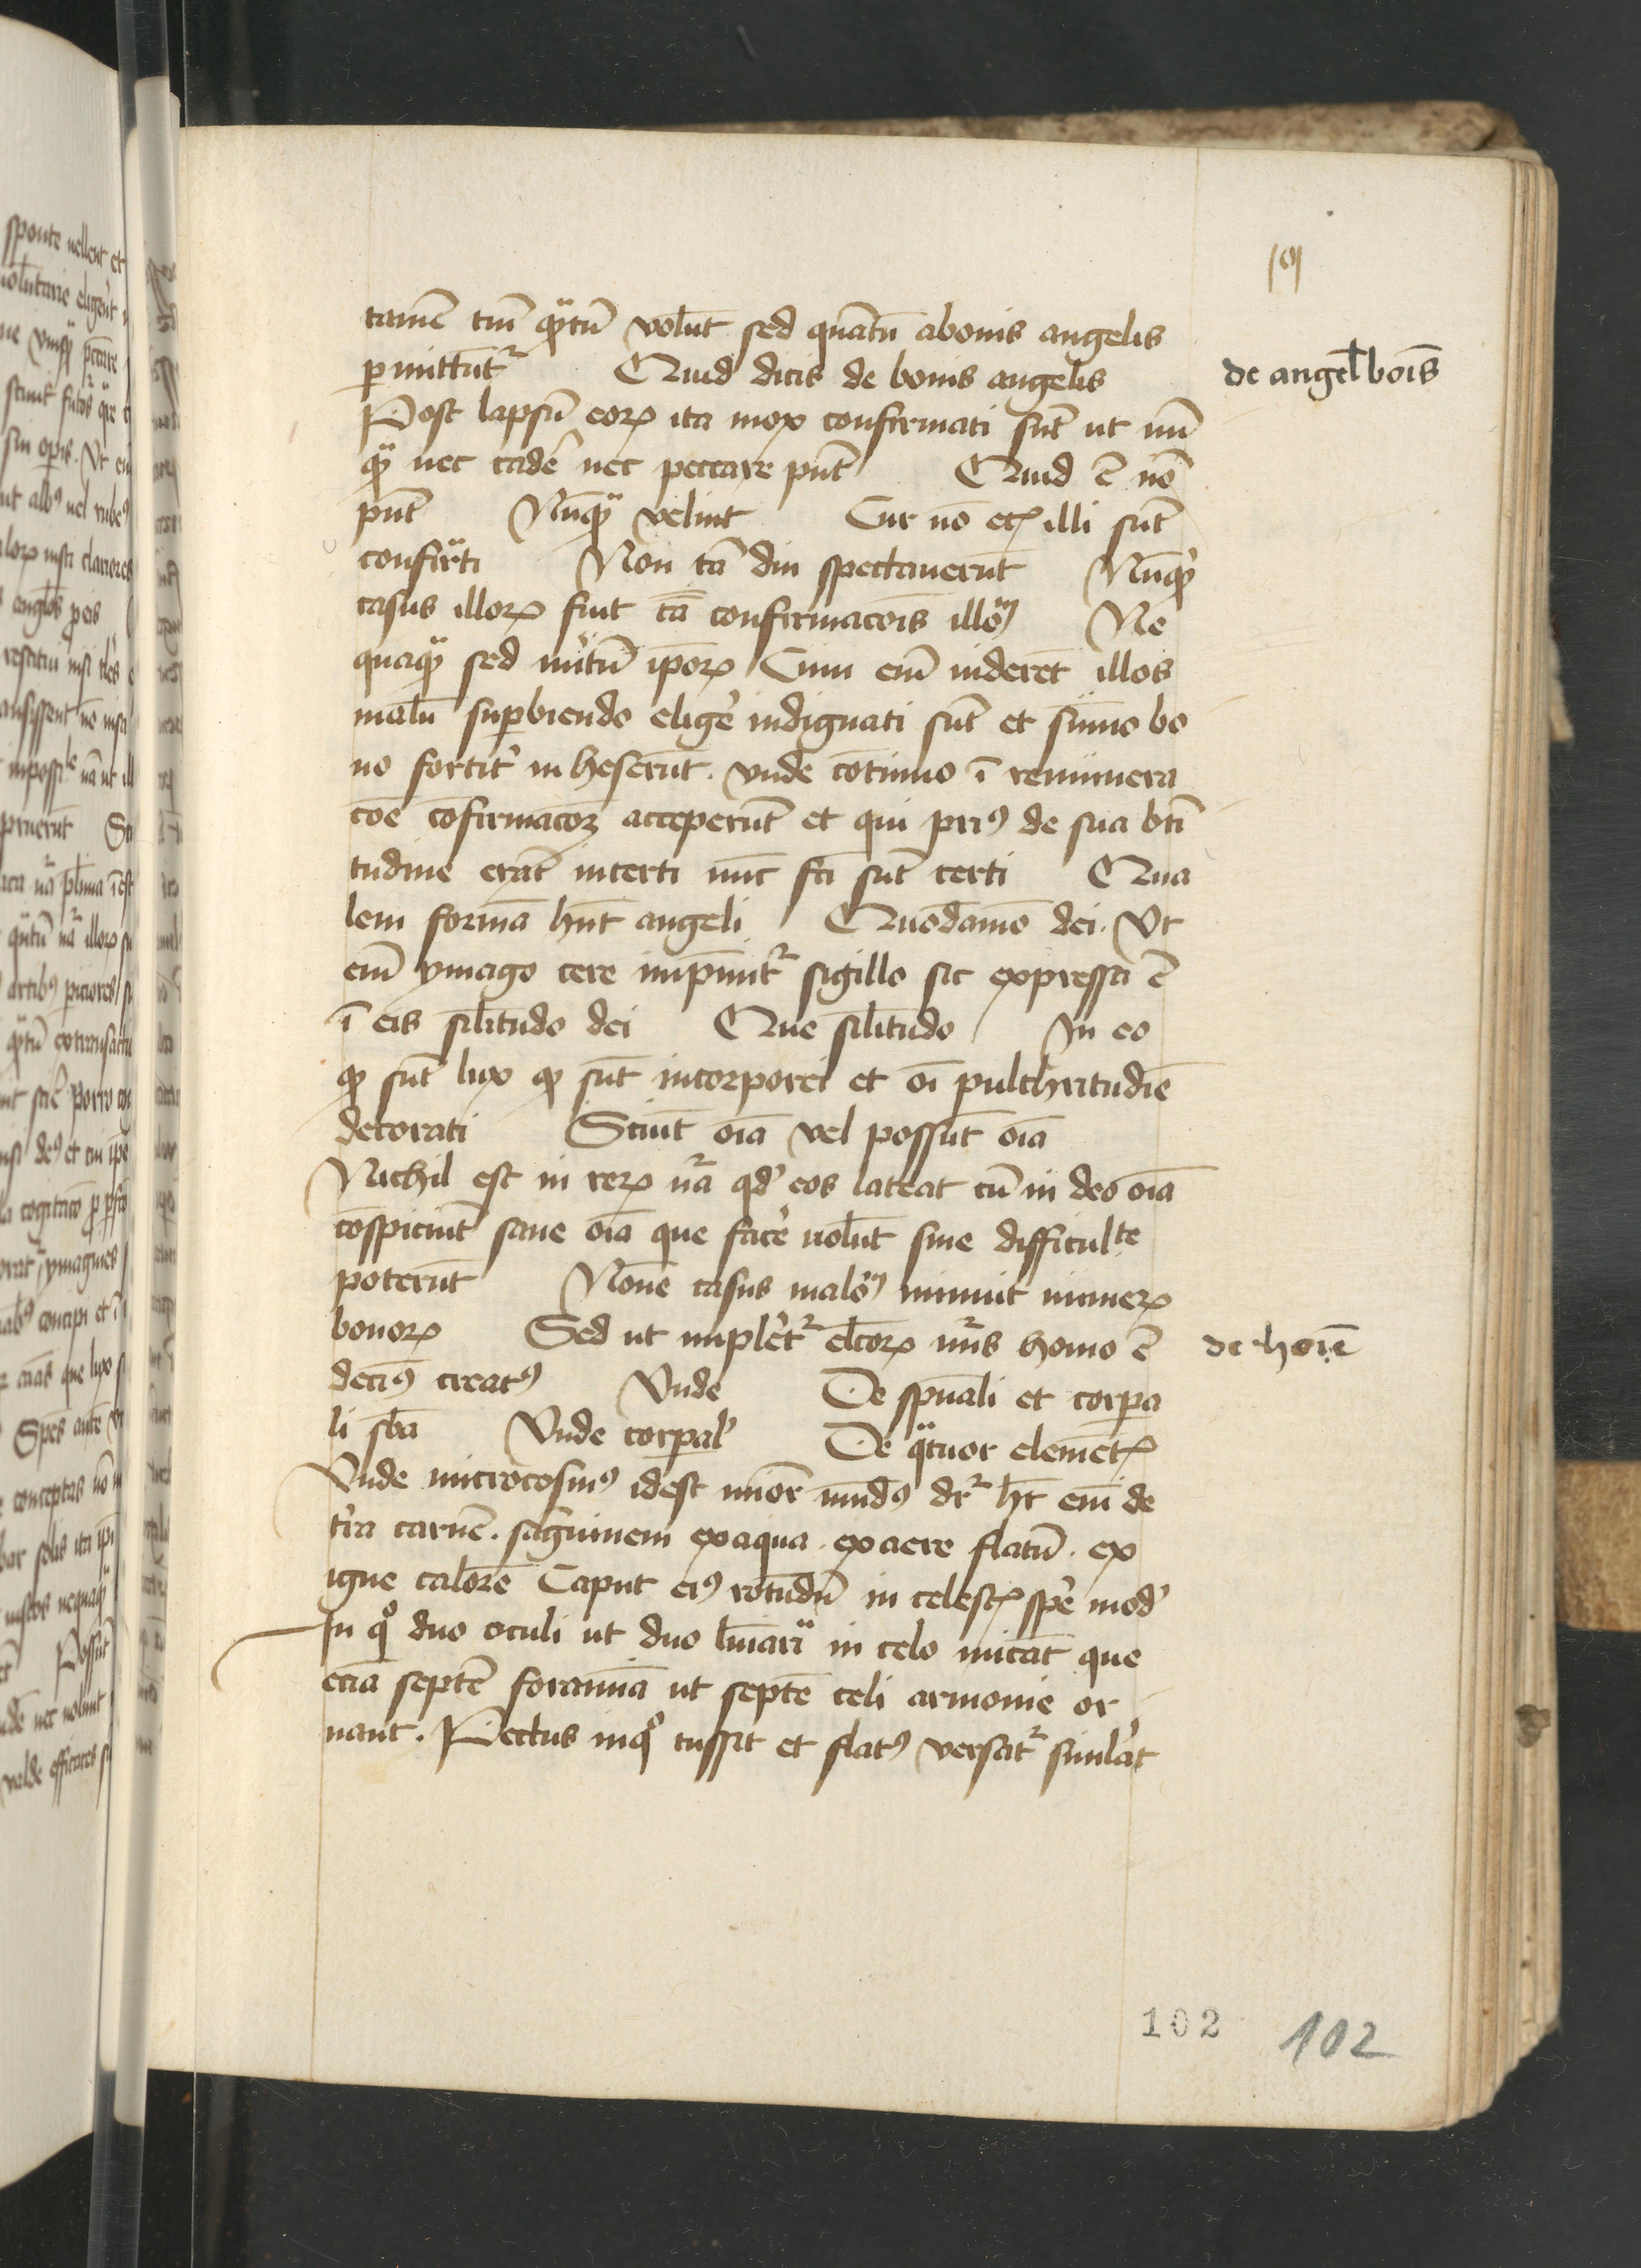 tamē tm̄ qͣtū volūt sed quātū abonis angelis
ꝑmittūtᷣ Quid dicis de bonis angelis
de angel̄ bois̄
Post lapsū eoꝝ ita mox confirmati sūt ut nū
qͣ nec cadē nec peccare pn̄t Quid ē nō
pn̄t Nūqͣ velint Cur nō etꝫ illi sūt
confirͣti Non tā diu spectauerūt Nūqͥ
casus illoꝝ fuit cā confirmacōis illoꝝ Ne
quaqͣ sed mītū ip̄oꝝ Cum em̄ uiderēt illos
malū suꝑbiendo eligē indignati sūt et sūmo bo
no fortit̄ inheserūt. vnde cōtinuo ī remunera
cōe cōfirmacōꝫ acceperūt et qui priꝰ de sua bti
tudine erāt incerti nūc fc̄i sūt certi Qua
lem formā hn̄t angeli Quodāmō dei. Vt
em̄ ymago cere imp̄mitᷣ sigillo sic expressa ē
ī eis sil̄itudo dei Que sil̄itudo In eo
qꝫ sūt lux qꝫ sūt incorporei et oī pulchritudīe
decorati Sciūt oīa vel possūt oīa
Nichil est in reꝝ nͣ̄ qd̓ eos lateat cū in deo oīa
cōspiciūt sane oīa que facē uolūt sine difficulte
poterūt Nōne casus maloꝝ minuit numeꝝ
bonoꝝ Sed ut implētᷣ elc̄oꝝ nūs homo ē
de hoīe
deciꝰ creatꝰ Vnde De spūali et corꝑa
li sb̄a Vnde corꝑal̓ De qͣtuor elemētꝫ
Vnde microcosmꝰ idest mīor mūdꝰ drᷣ hꝫ em̄ de
tr̄a carnē. sāguinem exaqua. exaere flatū. ex
igne calorē Caput eiꝰ rotūdū in celestꝫ spē mod̓
In qͦ duo oculi ut duo lūiariͣ in celo micāt que
eciā septē foramīa ut septē celi armonie or
nant. Pectus inqͦ tussit et flatꝰ versatᷣ simlāt
102
102